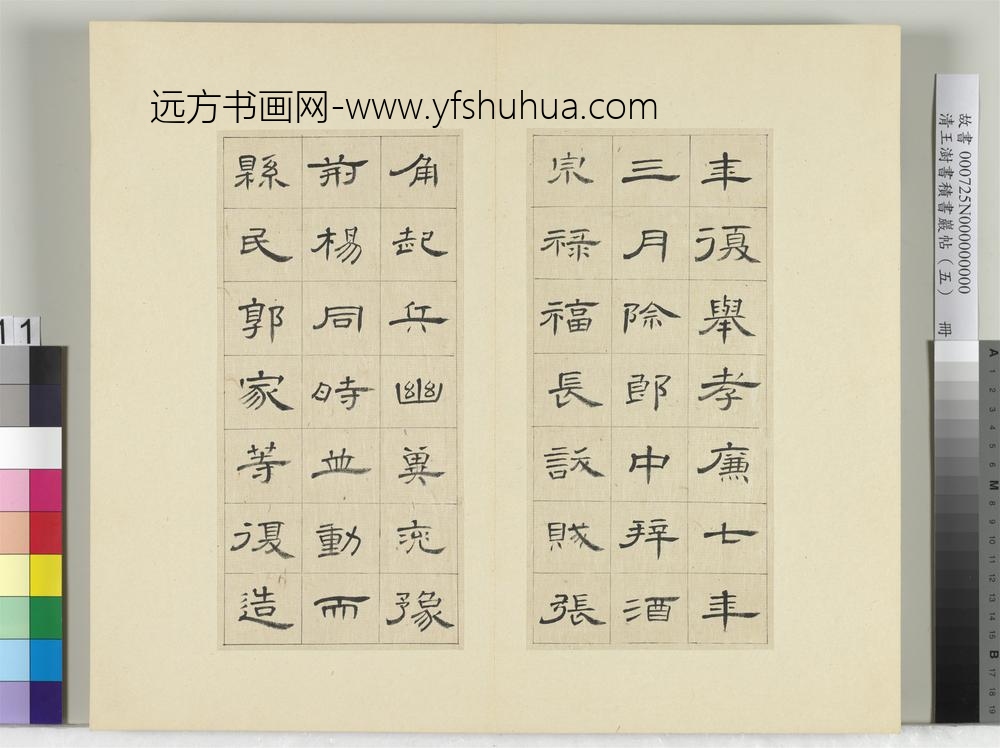 远方书画网-www.yfshuhua.com
年復舉孝廉七年
三月除郎中拜酒
泉祿福長訞賊張
角起兵幽冀兗豫
荊楊同時並動而
縣民郭家等復造
故書 000725N000000000
清王澍書積書巖帖（五） 冊
11
A 1 2 3 4 5 6 M 8 9 10 11 12 13 14 15 B 17 18 19